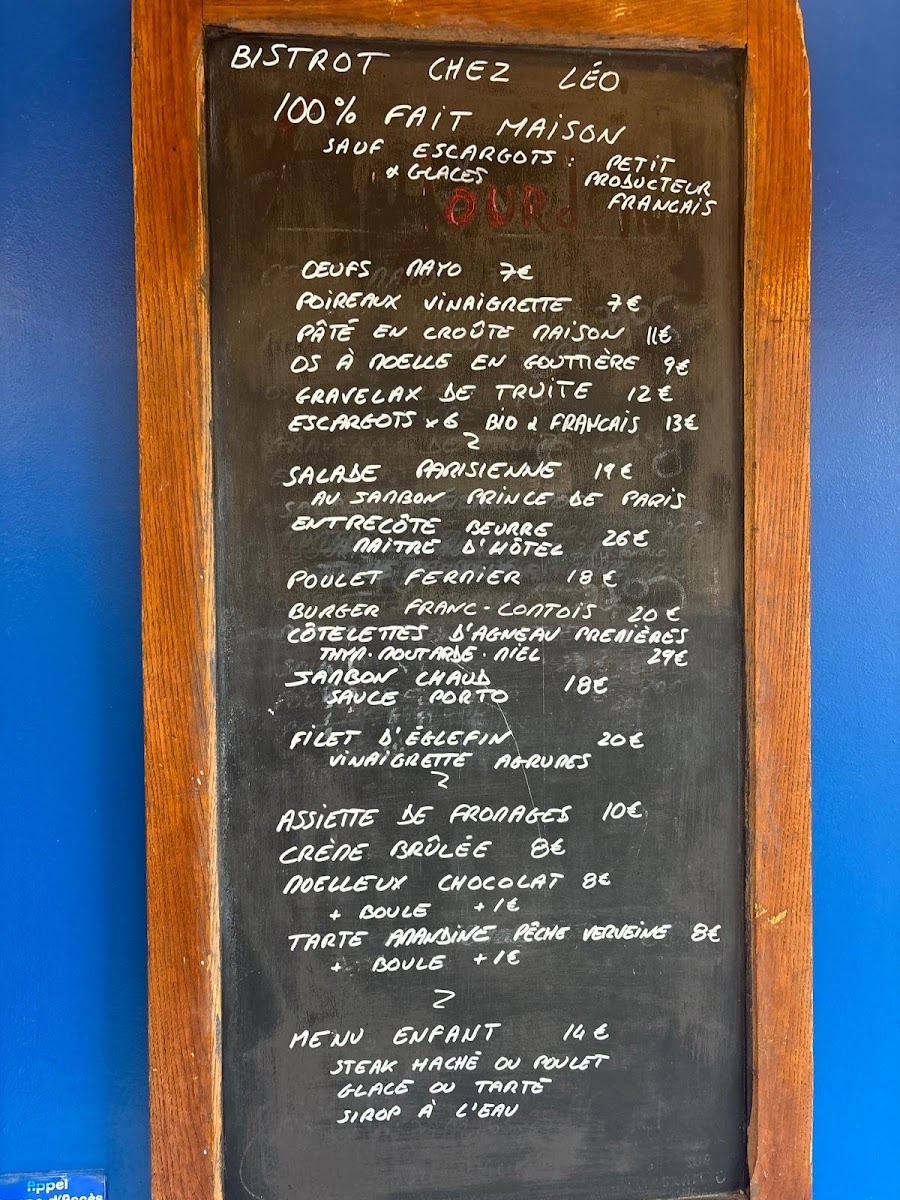 BISTROT CHEZ LÉO
100% FAIT MAISON
SAUF ESCARGOTS : PETIT
& GLACES PRODUCTEUR
FRANCAIS
OEUFS MAYO 7€
POIREAUX VINAIGRETTE 7€
PÂTÉ EN CROÛTE MAISON 11€
OS À MOELLE EN GOUTTIÈRE 9€
GRAVELAX DE TRUITE 12€
ESCARGOTS x6 BIO & FRANCAIS 13€
SALADE PARISIENNE 19€
AU JAMBON PRINCE DE PARIS
ENTRECÔTE BEURRE
MAÎTRE D'HÔTEL 26€
POULET FERMIER 18€
BURGER FRANC-COMTOIS 20€
CÔTELETTES D'AGNEAU PREMIÈRES
THYM. MOUTARDE. MIEL 29€
JAMBON CHAUD 18€
SAUCE PORTO
FILET D'ÉGLEFIN 20€
VINAIGRETTE AGRUMES
ASSIETTE DE FROMAGES 10€
CRÈME BRÛLÉE 8€
MOELLEUX CHOCOLAT 8€
+ BOULE +1€
TARTE AMANDINE PÊCHE VERVEINE 8€
+ BOULE +1€
MENU ENFANT 14€
STEAK HACHÉ OU POULET
GLACE OU TARTE
SIROP À L'EAU
Appel